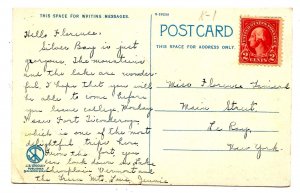 THIS SPACE FOR WRITING MESSAGES.
Hello Florence:
Silver Bay is just
gorgeous. The mountains
and the lake are wonder-
ful. I hope that you will
be able to come before
you leave college Monday
Passes Fort Ticonderoga
which is one of the most
delightful trips here
From the fort, you
can look down on Lake
Champlain Vermont and
the Green Mts. Love Jennie
POST CARD
THIS SPACE FOR ADDRESS ONLY.
Miss Florence
Main Street
Le Roy
New York.
2 CENTS 2